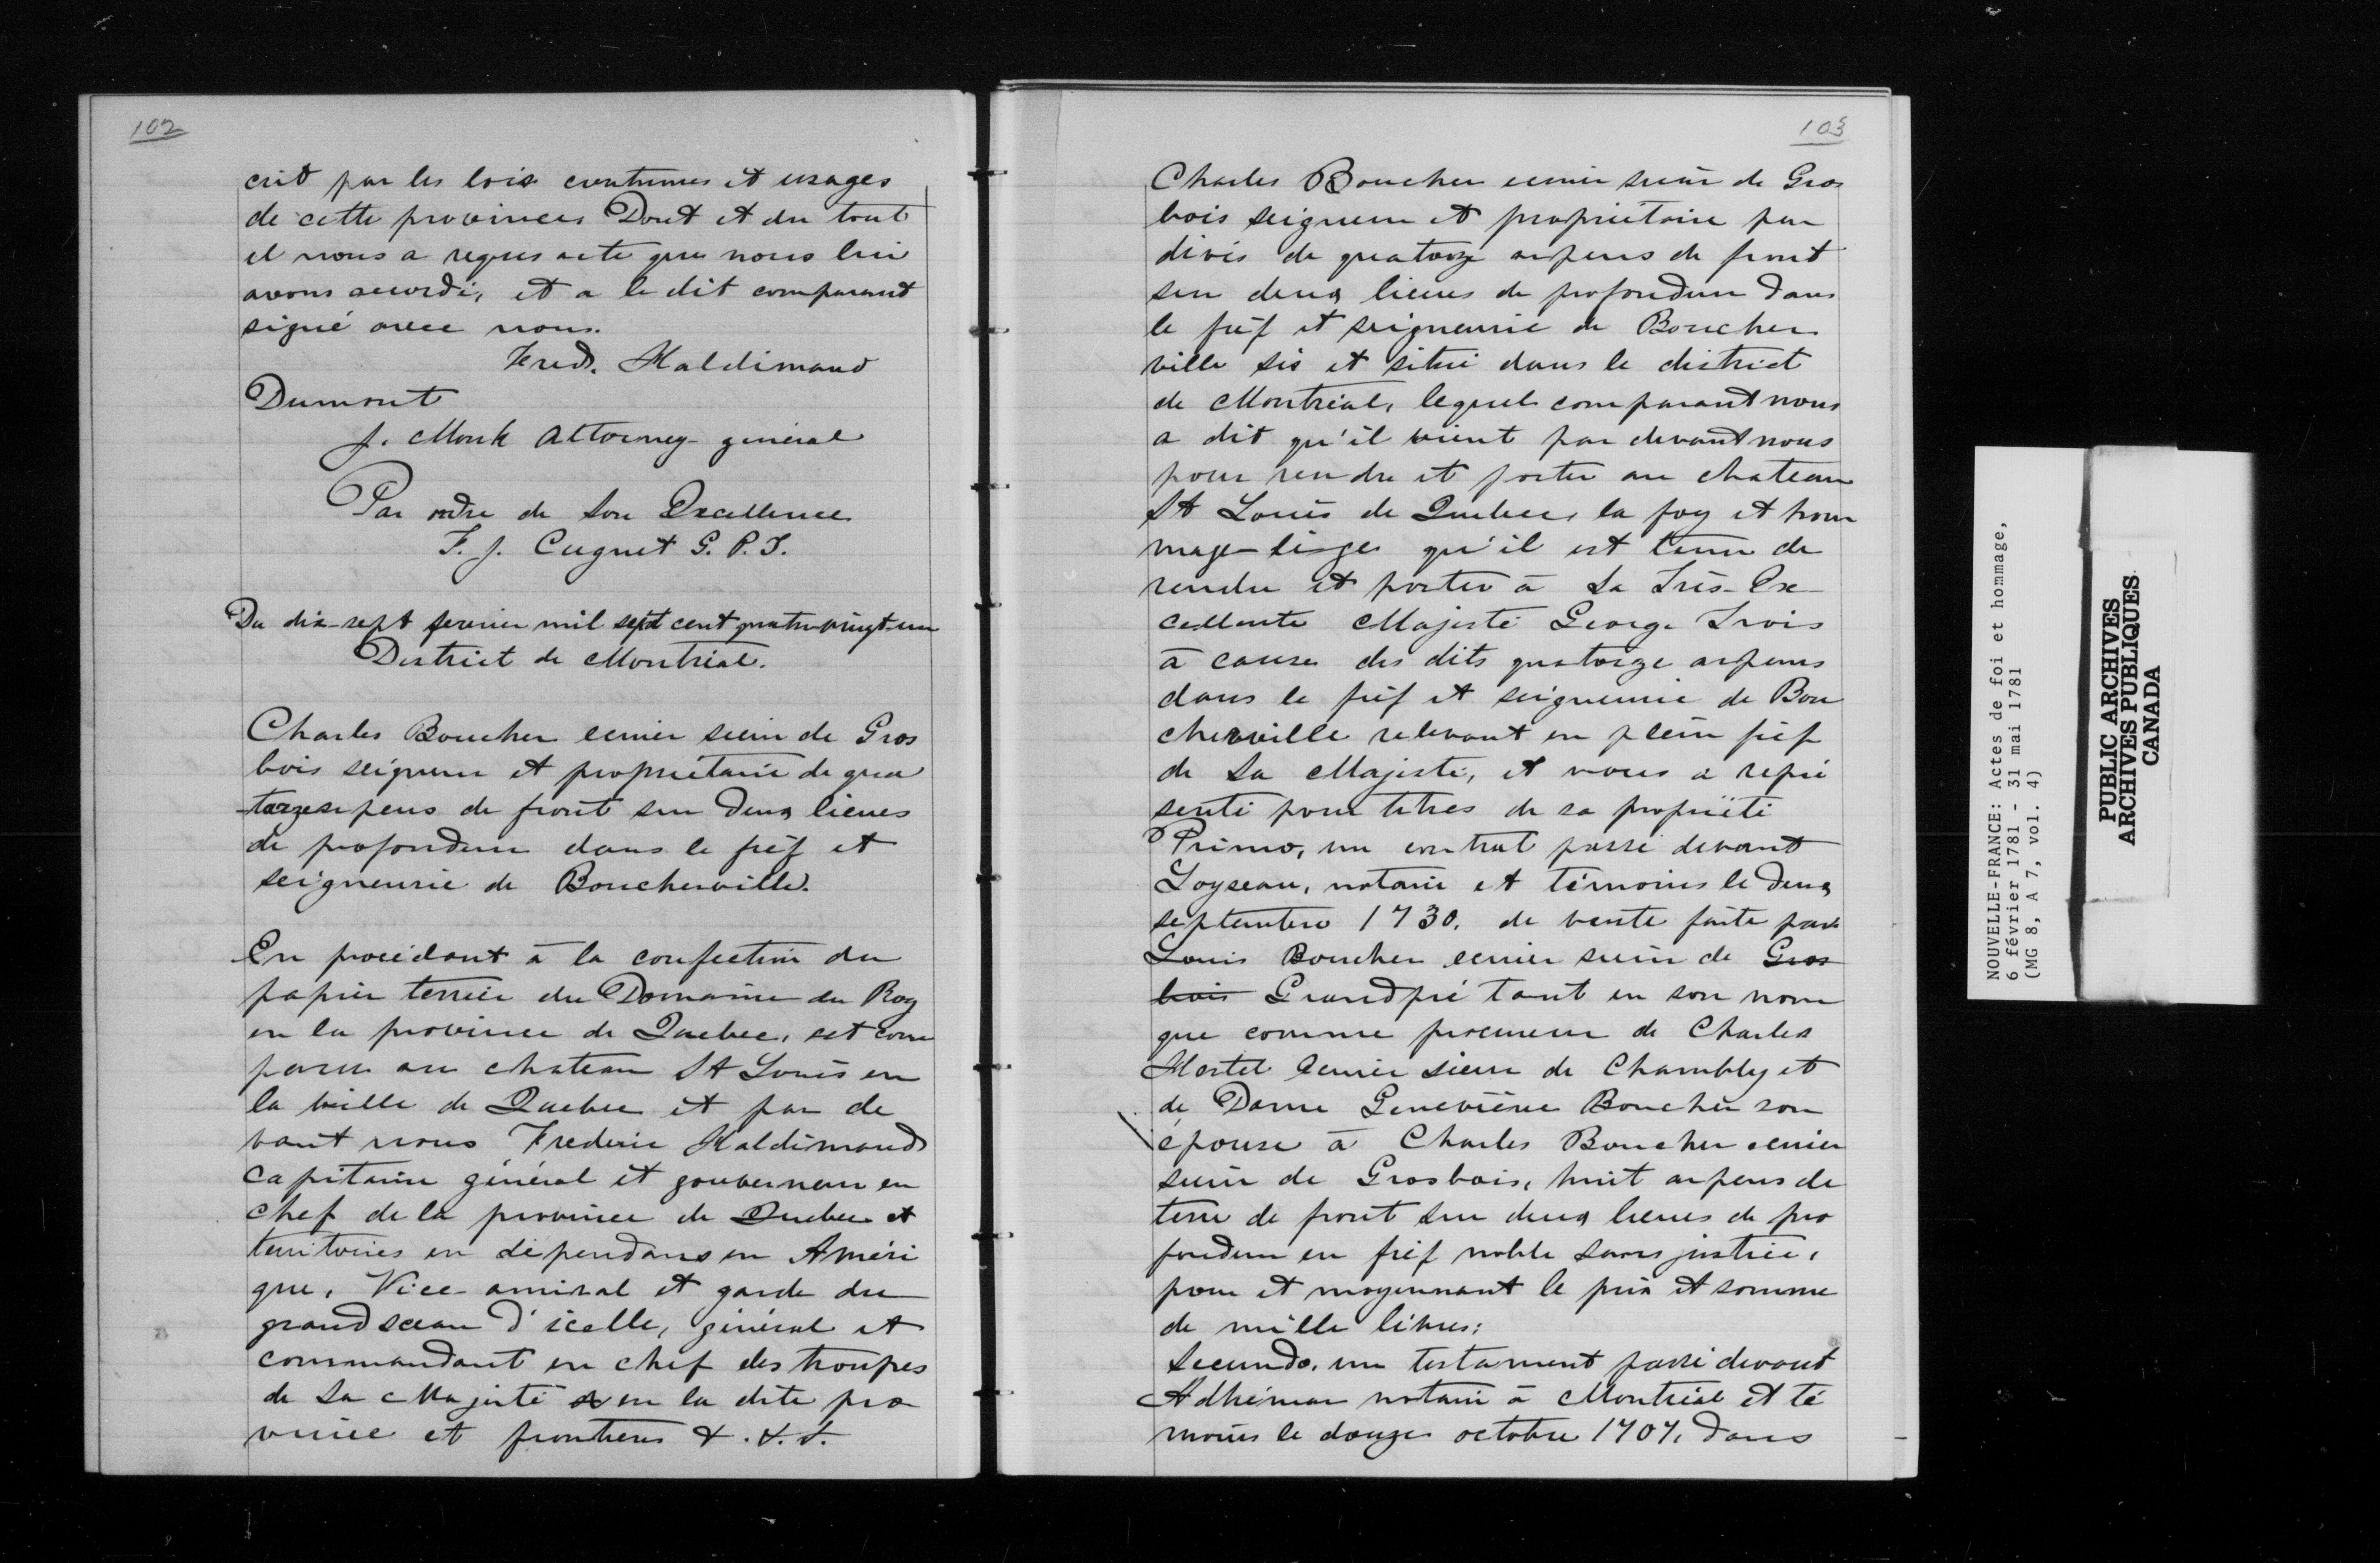 102
crit par les lois coutumes et usages
de cette provinces Dont et du tout
il nous a requis acte que nous lui
avons accordé, et a le dit comparant
signé avec nous.
Fred. Haldimand
Dumont
J. Monk Attorney-general
Par ordre de Son Excellence
F. J. Cugnet G. P. T.
Du dix-sept fevrier mil sept cent quatre-vingt-un
District de Montréal.
Charles Boucher ecuier sieur de Gros
bois seigneur et propriétaire de qua
-torze arpens de front sur deux lieues
de profondeur dans le fief et
seigneurie de Boucherville.
En procédant à la confection du
papier terrier du Domaine du Roy
en la province de Quebec, est com
paru au chateau St Louis en
la ville de Quebec et par de
vant nous Frederic Haldimand
capitaine général et gouverneur en
chef de la province de Quebec et
territoires en dépendans en Améri
que, Vice-amiral et garde du
grand sceau d'icelle, général et
commandant en chef des troupes
de Sa Majesté en la dite pro
vince et frontieres &. &. &.
103
Charles Boucher ecuier sieur de Gros
bois seigneur et propriétaire par
divis de quatorze arpens de front
sur deux lieues de profondeur dans
le fief et seigneurie de Boucher
ville sis et situé dans le district
de Montréal, lequel comparant nous
a dit qu'il vient par devant nous
pour rendre et porter au chateau
St Louis de Quebec, la foy et hom
mage-lige qu'il est tenu de
rendre et porter à Sa Très-Ex-
cellente Majesté George Trois
à cause des dits quatorze arpens
dans le fief et seigneurie de Bou
cherville relevant en plein fief
de Sa Majesté, et nous a repré
senté pour titres de sa propriété
Primo, un contrat passé devant
Loyseau, notaire et témoins le deux
septembre 1730. de vente faite par
Louis Boucher ecuier sieur de Gros
bois Grandpré tant en son nom
que comme procureur de Charles
Hertel Ecuier sieur de Chambly et
de Dame Geneviève Boucher son
épouse à Charles Boucher ecuier
sieur de Grosbois, huit arpens de
terre de front sur deux lieues de pro
fondeur en fief noble sans justice,
pour et moyennant le prix et somme
de mille livres:
Secundo, un testament passé devant
Adhémar notaire à Montréal et té
moins le douze octobre 1707, dans
NOUVELLE-FRANCE: Actes de foi et hommage,
6 février 1781 - 31 mai 1781
(MG 8, A 7, vol. 4)
PUBLIC ARCHIVES
ARCHIVES PUBLIQUES
CANADA